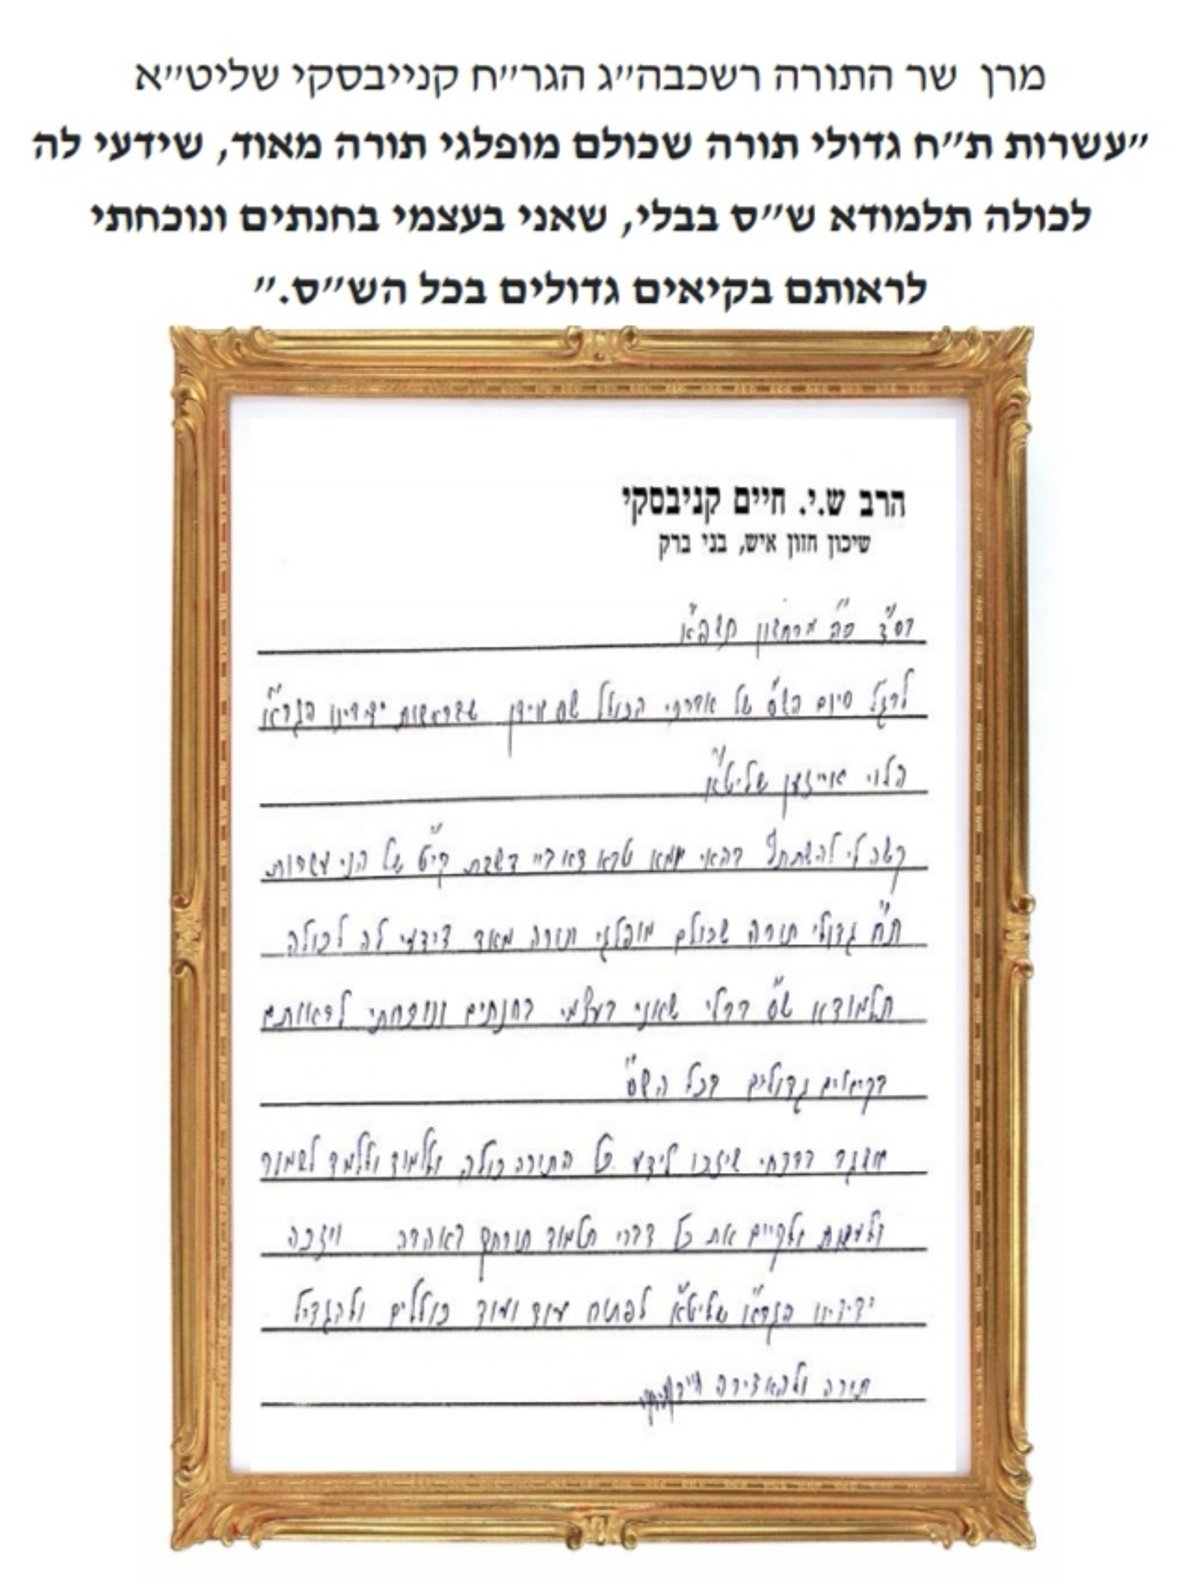 מרן שר התורה רשכבה״ג הגר״ח קנייבסקי שליט״א
״עשרות ת״ח גדולי תורה שכולם מופלגי תורה מאוד, שידעי לה
לכולה תלמודא ש״ס בבלי, שאני בעצמי בחנתים ונוכחתי
לראותם בקיאים גדולים בכל הש״ס.״
הרב ש.י. חיים קניבסקי
שיכון חזון איש, בני ברק
בס״ד מרחשון תשפ״א
לרגל סיום הש״ס של אברכי הכולל שבראשות ידידינו הגרא״ז
הלוי שליט״א
קשה לי להשתתף בהאי יומא טבא דאביי בשבת קי״ט של הני עשרות
ת״ח גדולי תורה שכולם מופלגי תורה מאד דידעי לה לכולה
תלמודא ש״ס בבלי שאני בעצמי בחנתים ונוכחתי לראותם
בקיאים גדולים בכל הש״ס
משגר ברכתי שיזכו לידע כל התורה כולה וללמוד וללמד לשמור
ולעשות ולקיים את כל דברי תלמוד תורתך באהבה ויזכה
ידידינו שליט״א לפתוח עוד ועוד כוללים ולהגדיל
תורה ולהאדירה